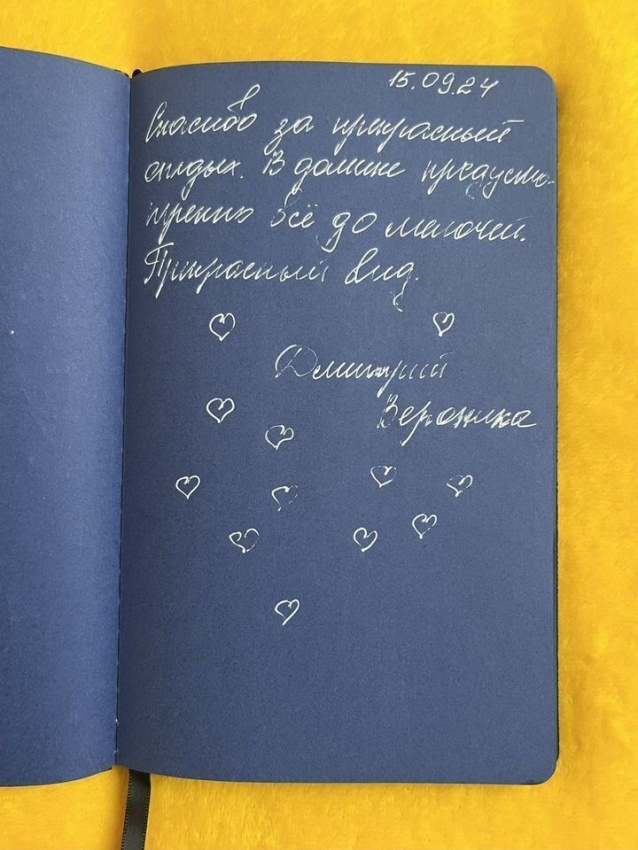 15.09.24
Спасибо за прекрасный
отдых. В домике предусмо-
трено всё до мелочей.
Прекрасный вид.
Дмитрий
Вероника